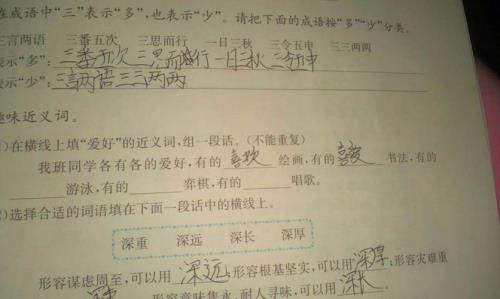 在成语中“三”表示“多”,也表示“少”。请把下面的成语按“多”“少”分类。
三言两语 三番五次 三思而行 一日三秋 三令五申 三三两两
表示“多”:三番五次 三思而行 一日三秋 三令五申
表示“少”:三言两语 三三两两
趣味近义词。
)在横线上填“爱好”的近义词,组一段话。(不能重复)
我班同学各有各的爱好,有的 喜欢 绘画,有的 喜爱 书法,有的
游泳,有的 弈棋,有的 唱歌。
)选择合适的词语填在下面一段话中的横线上。
深重 深远 深长 深厚
形容谋虑周至,可以用 深远;形容根基坚实,可以用 深厚;形容灾难重
深重 形容意味隽永、耐人寻味,可以用 深长